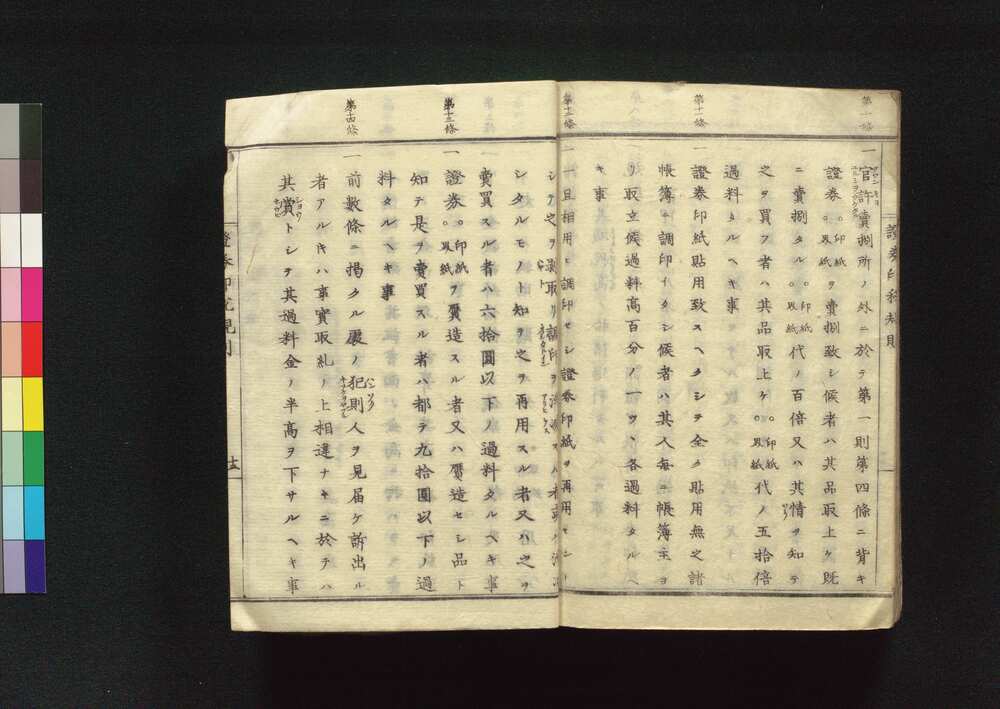 證券印税規則
第十條
一 官許賣捌所ノ外ニ於テ第一則第四條ニ背キ
證券。印紙。界紙ヲ賣捌致シ候者ハ其品取上ケ既
ニ賣捌タル。印紙。界紙代ノ百倍又ハ其情ヲ知テ
之ヲ買フ者ハ其品取上ケ。印紙。界紙代ノ五拾倍
過料タルヘキ事
第十一條
一 證券印紙貼用致スヘクシテ全ク貼用無之諸
帳簿ニ調印イタシ候者ハ其人每ニ帳簿主ヨ
リ取立候過料高百分ノ一ツヽ各過料タルヘ
キ事
第十二條
一 一旦相用ヒ調印セシ證券印紙ヲ再用セン
シタルモノト知ヲ之ヲ再用スル者又ハ之ヲ
賣買スル者ハ六拾圓以下ノ過料タルヘキ事
第十三條
一 證券。印紙。界紙ヲ贋造スル者又ハ贋造セシ品ト
知テ是ヲ賣買スル者ハ都テ九拾圓以下ノ過
料タルヘキ事
第十四條
一 前數條ニ揭クル處ノ犯則人ヲ見届ケ訴出ル
者アル片ハ事實取糺ノ上相違ナキニ於テハ
其賞トシテ其過料金ノ半高ヲ下サルヘキ事
證券印税規則
十五